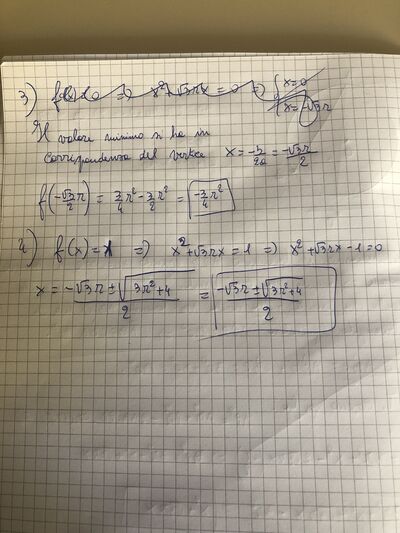 3) f(x)=0 => x²+√3rx=0 => { x=0
x=-√3r
Il valore minimo si ha in
corrispondenza del vertice x = -b/2a = -√3r/2
f(-√3/2 r) = 3/4 r² - 3/2 r² = -3/4 r²
4) f(x)=1 => x²+√3rx=1 => x²+√3rx-1=0
x = (-√3r ± √(3r²+4))/2 = (-√3r ± √(3r²+4))/2